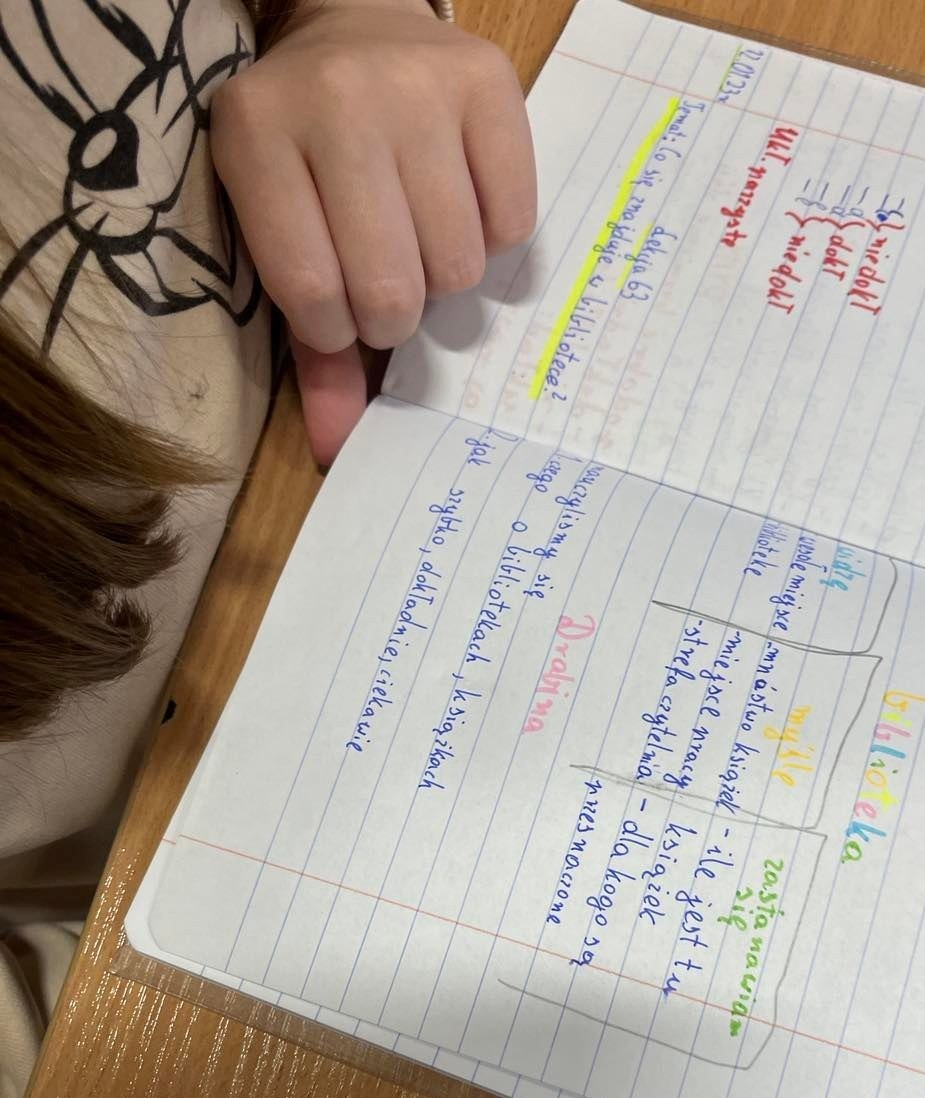 -ć} niedokt
-ą
-ę} dokt
-ę} niedokt
Ukł. parzyste
Lekcja 63
Temat: Co się znajduje w bibliotece?
biblioteka
widzę
myślę
zastanawiam
się
miejsce
bibliotekę
-mnóstwo książek
-miejsce pracy
-strefa czytelnia
- ile jest tu
książek
- dla kogo są
przeznaczone
Drabina
1. czego nauczyliśmy się
o bibliotekach, książkach
2. jak
szybko, dokładnie, ciekawie